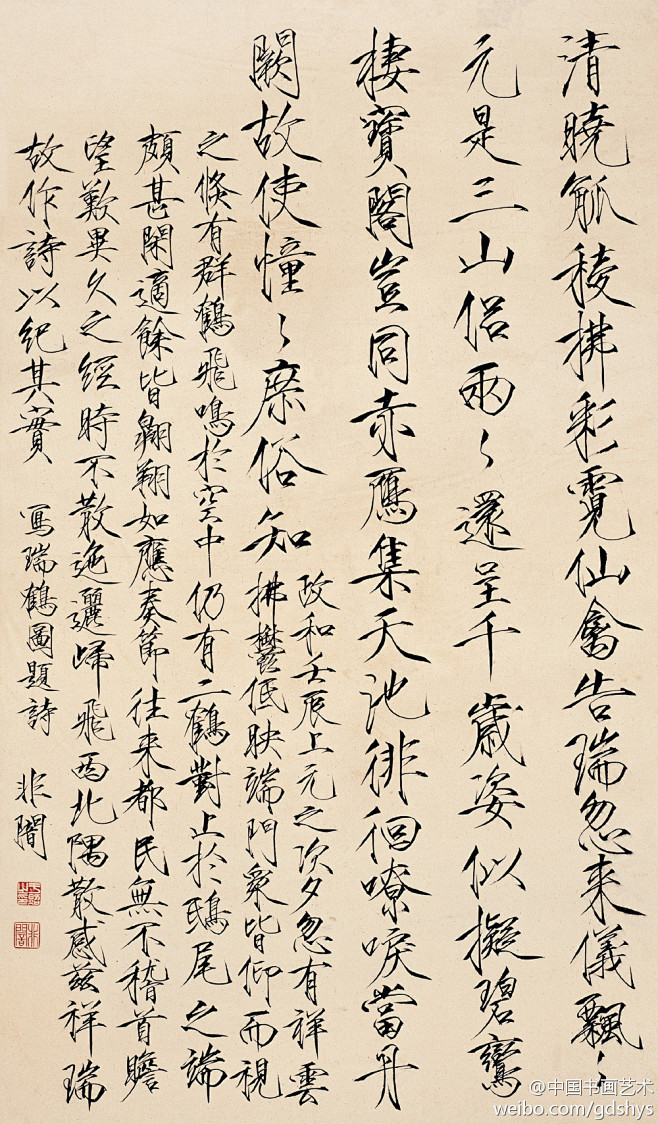 清曉觚稜拂彩霓仙禽告瑞忽来儀飄〻
元是三山侣兩〻還呈千歲姿似擬碧鸞
棲寶閣豈同赤鴈集天池徘徊嘹唳當丹
闕故使憧〻庶俗知
政和壬辰上元之次夕忽有祥雲
拂鬱低映端門眾皆仰而視
之倏有群鶴飛鳴於空中仍有二鶴對止於鴟尾之端
頗甚閑適餘皆翱翔如應奏節往来都民無不稽首瞻
望歎異久之經時不散迤邐歸飛西北隅散感茲祥瑞
故作詩以紀其實 寫瑞鶴圖題詩 非闇
非闇
@中国书画艺术
weibo.com/gdshys